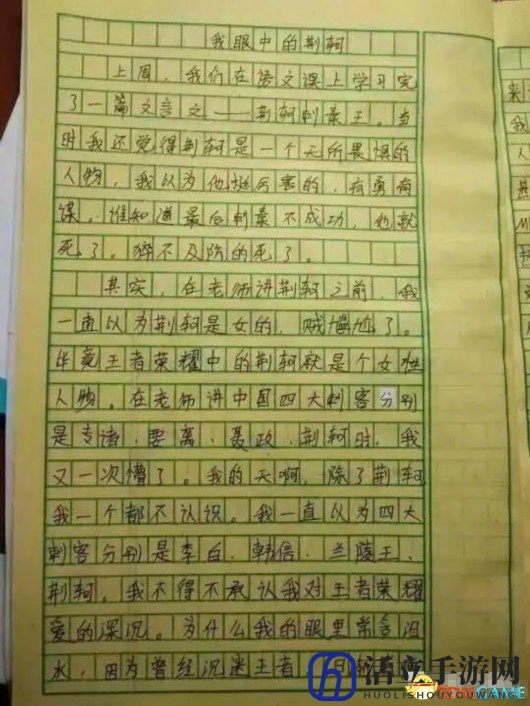 我眼中的荆轲
上周，我们在语文课上学习完
了一篇文言文——荆轲刺秦王。当
时我还觉得荆轲是一个无所畏惧的
人物，我以为他挺厉害的，有勇有
谋。谁知道最后刺秦不成功，他就
死了。猝不及防的死了。
其实，在老师讲荆轲之前，我
一直以为荆轲是女的，贼尴尬了。
毕竟王者荣耀中的荆轲就是个女性
人物。在老师讲中国四大刺客分别
是专诸、要离、聂政、荆轲时，我
又一次懵了。我的天啊，除了荆轲
我一个都不认识。我一直以为四大
刺客分别是李白、韩信、兰陵王、
荆轲。我不得不承认我对王者荣耀
爱的深沉。为什么我的眼里常含泪
水，因为曾经沉迷王者
来
我
人
M
活立手游网
HUOLISHOUYOUWANG